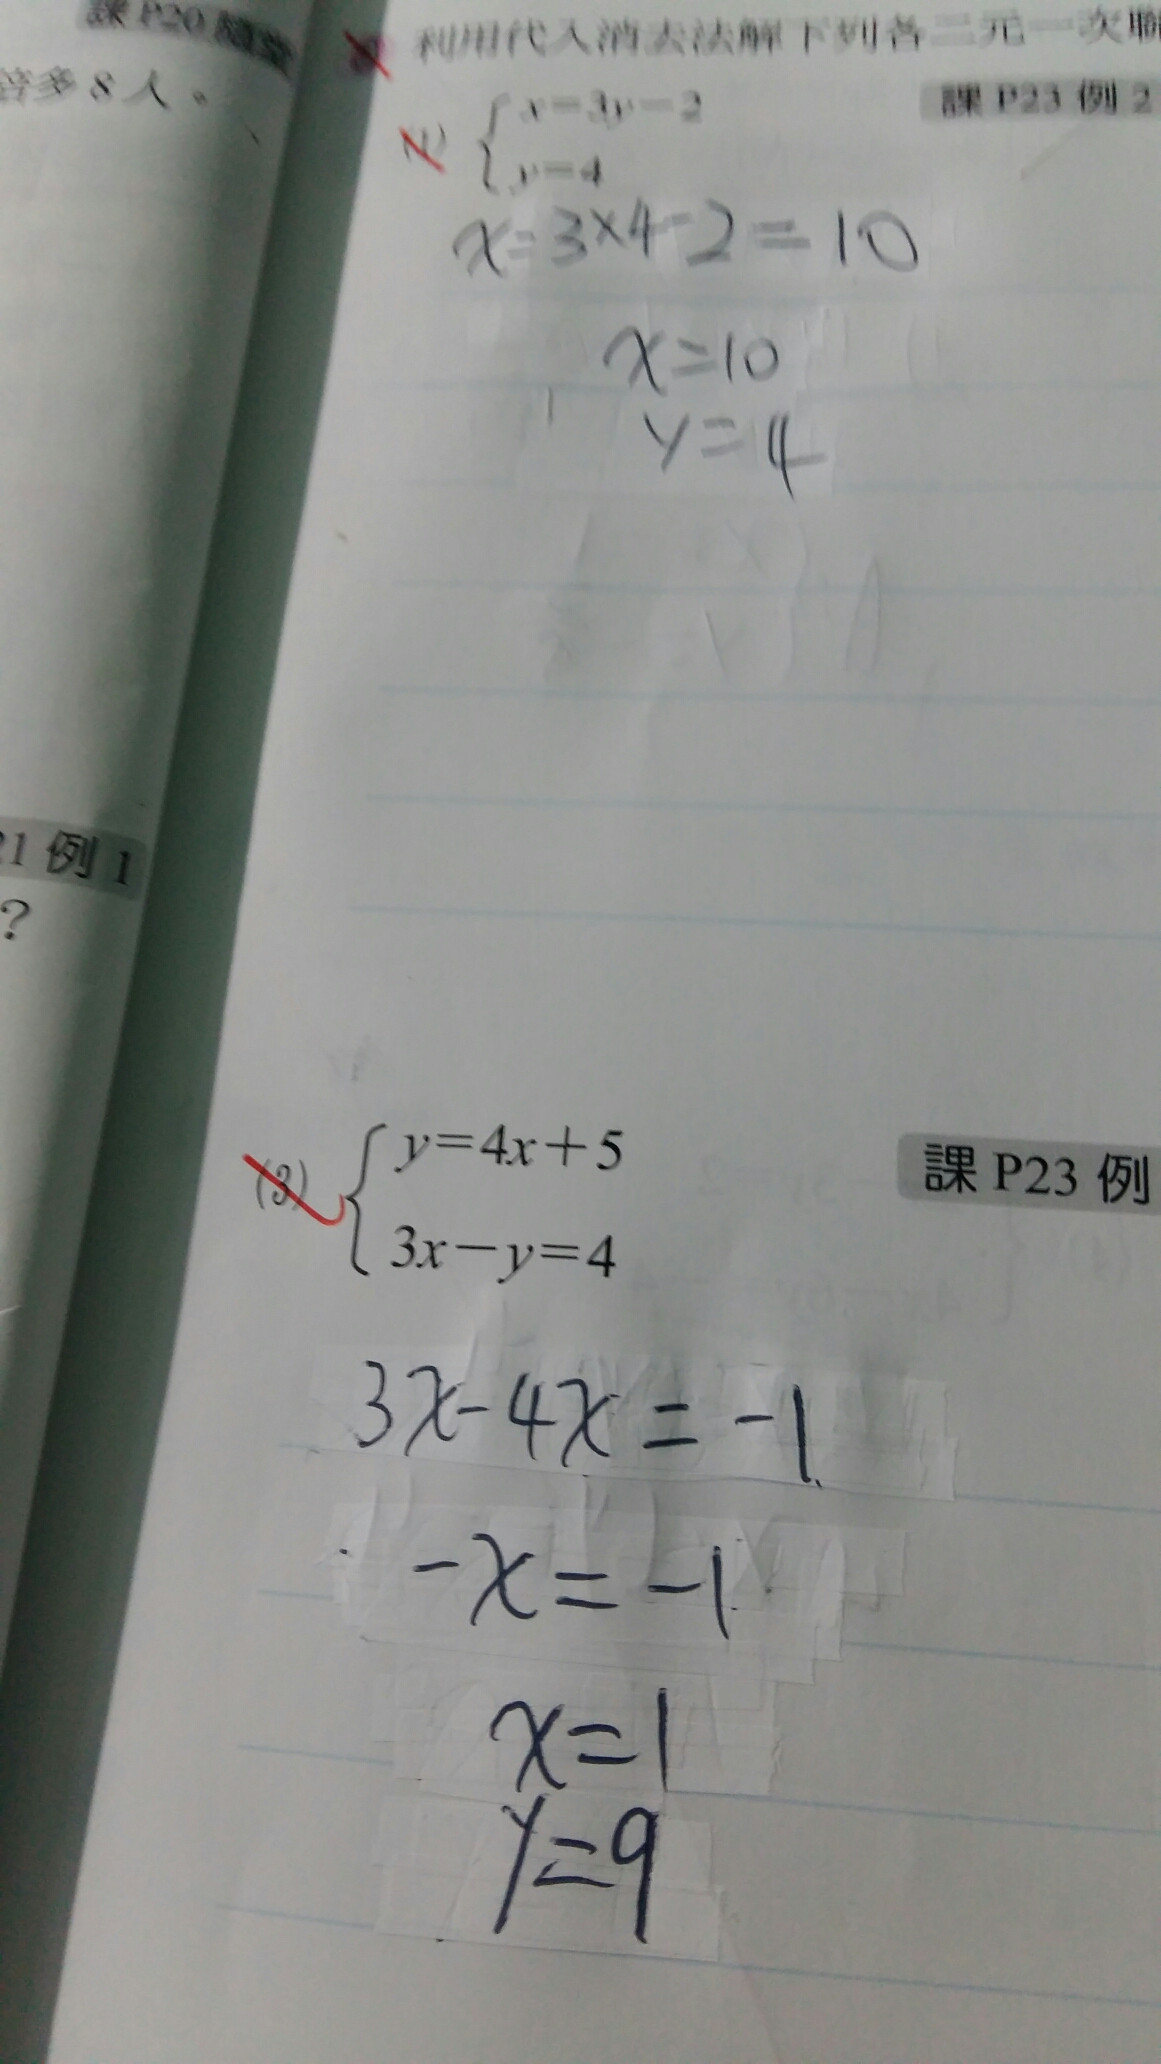 課 P20 隨堂
答多 8 人。
21 例 1
?
利用代入消去法解下列各二元一次聯
課 P23 例 2
(1) x=3y-2
y=4
x=3×4-2=10
x=10
y=4
(3) y=4x+5
課 P23 例
3x-y=4
3x-4x=-1
-x=-1
x=1
y=9